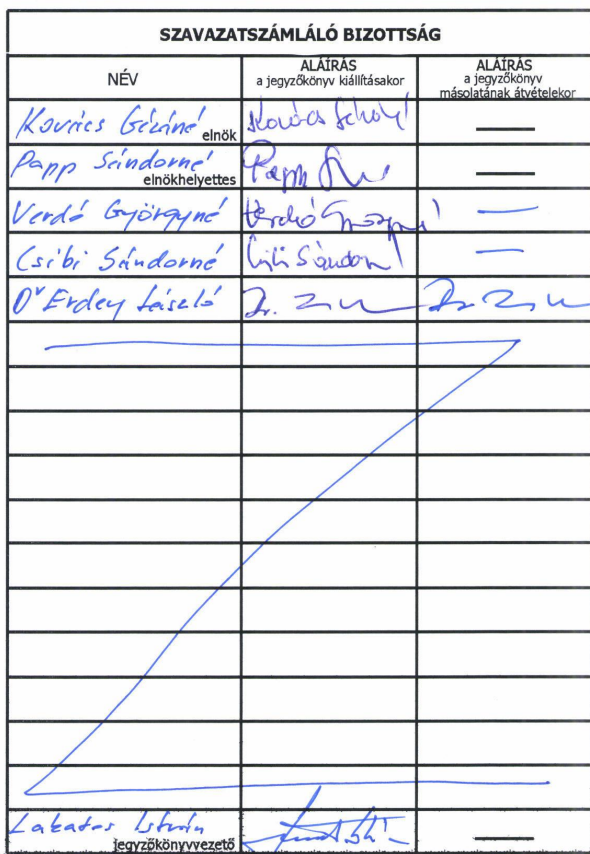 SZAVAZATSZÁMLÁLÓ BIZOTTSÁG
NÉV
ALÁÍRÁS
a jegyzőkönyv kiállításakor
ALÁÍRÁS
a jegyzőkönyv
másolatának átvételekor
Kovács Gézáné elnök
Papp Sándorné Papp
elnökhelyettes
Verdó Györgyné
Csibi Sándorné
Dr Erdey László Dr. Dr.
Lakatos István
jegyzőkönyvvezető